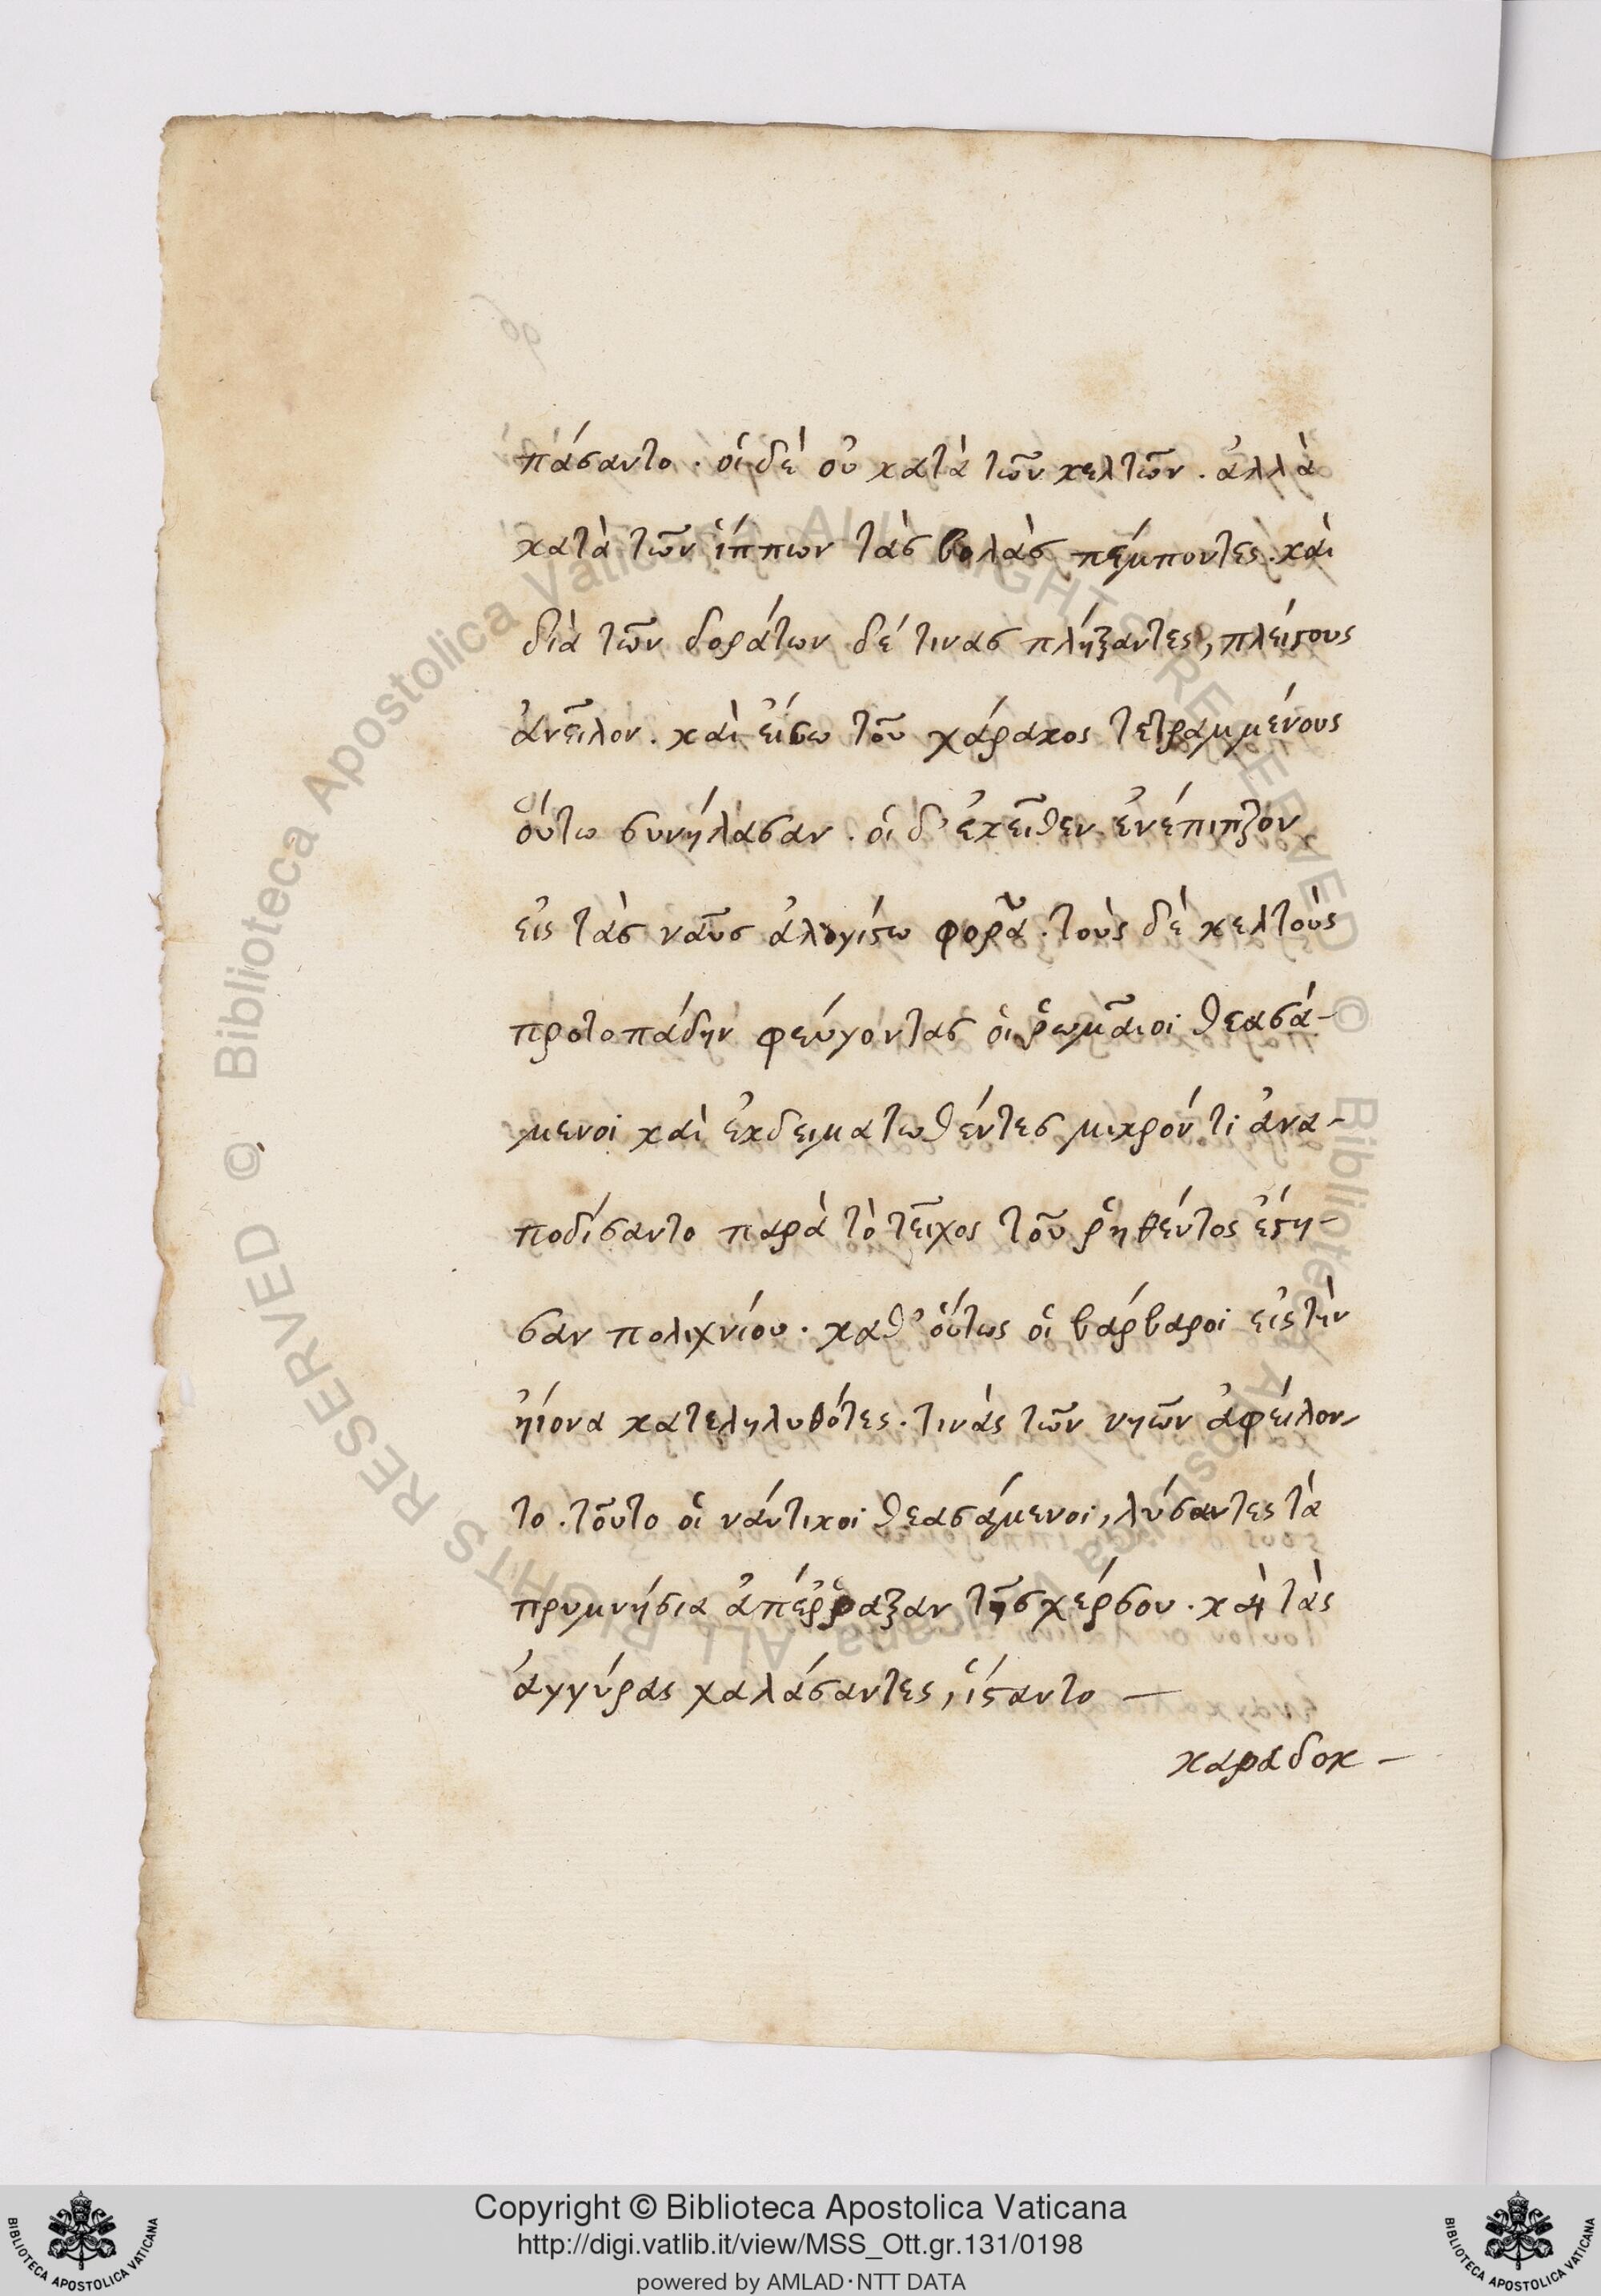 πάσαντο . οἱ δὲ οὐ κατὰ τῶν κελτῶν . ἀλλὰ
κατὰ τῶν ἵππων τὰσ βολὰσ πέμποντες . καὶ
διὰ τῶν δοράτων δέ τινασ πλήξαντες, πλείϛους
ἀνεῖλον . καὶ εἴσω τοῦ χάρακος τετραμμένους
οὕτω συνήλασαν . οἱ δ' ἐκεῖθεν ἐνέπιπτον
εἰς τὰσ ναῦσ ἀλογίϛω φορᾶ . τοὺς δὲ κελτοὺς
προτοπάδην φεύγοντας οἱ ῥωμαῖοι θεασά-
μενοι καὶ ἐκδειματωθέντεσ μικρόν τι ἀνα-
ποδίσαντο παρὰ τὸ τεῖχος τοῦ ῥηθέντος ἔϛη-
σαν πολιχνίου . καθ' οὕτως οἱ βάρβαροι εἰς τὴν
ἠϊόνα κατεληλυθότες . τινὰς τῶν νηῶν ἀφείλον-
το . τοῦτο οἱ νάυτικοι θεασάμενοι, λύσαντες τὰ
πρυμνήσια ἀπέῤῥαξαν τῆσ χέρσου . καὶ τὰς
ἀγγύρας χαλάσαντες, ἵϛαντο —
καραδοκ -
Copyright © Biblioteca Apostolica Vaticana
http://digi.vatlib.it/view/MSS_Ott.gr.131/0198
powered by AMLAD·NTT DATA
BIBLIOTECA APOSTOLICA VATICANA
BIBLIOTECA APOSTOLICA VATICANA